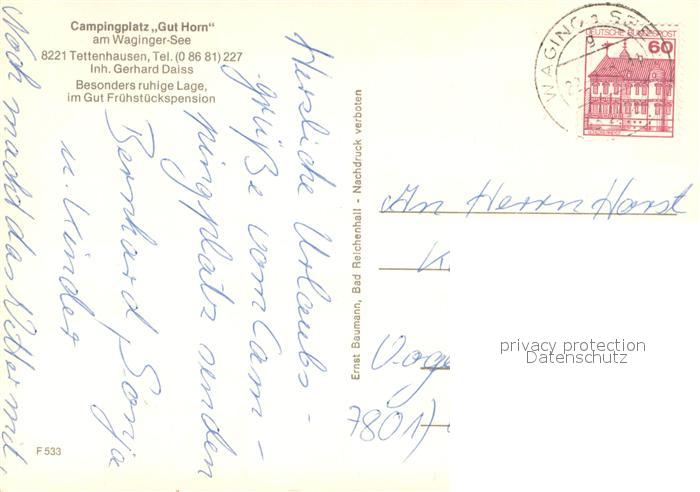 Campingplatz „Gut Horn“
am Waginger-See
8221 Tettenhausen, Tel. (0 86 81) 227
Inh. Gerhard Daiss
Besonders ruhige Lage,
im Gut Frühstückspension
Herzliche Urlaubs-
grüße vom Cam-
pingplatz senden
Bernhard, Sonja
u. Kinder
Noch macht das Wetter mit,
F 533
Ernst Baumann, Bad Reichenhall - Nachdruck verboten
WAGING a. SEE
DEUTSCHE BUNDESPOST
60
An Herrn Horst
K
Voge
7801)
privacy protection
Datenschutz